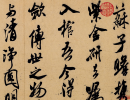 蘇子瞻携
紫金研去嘱
入棺吾今得
斂傳世之物
與清淨圓明